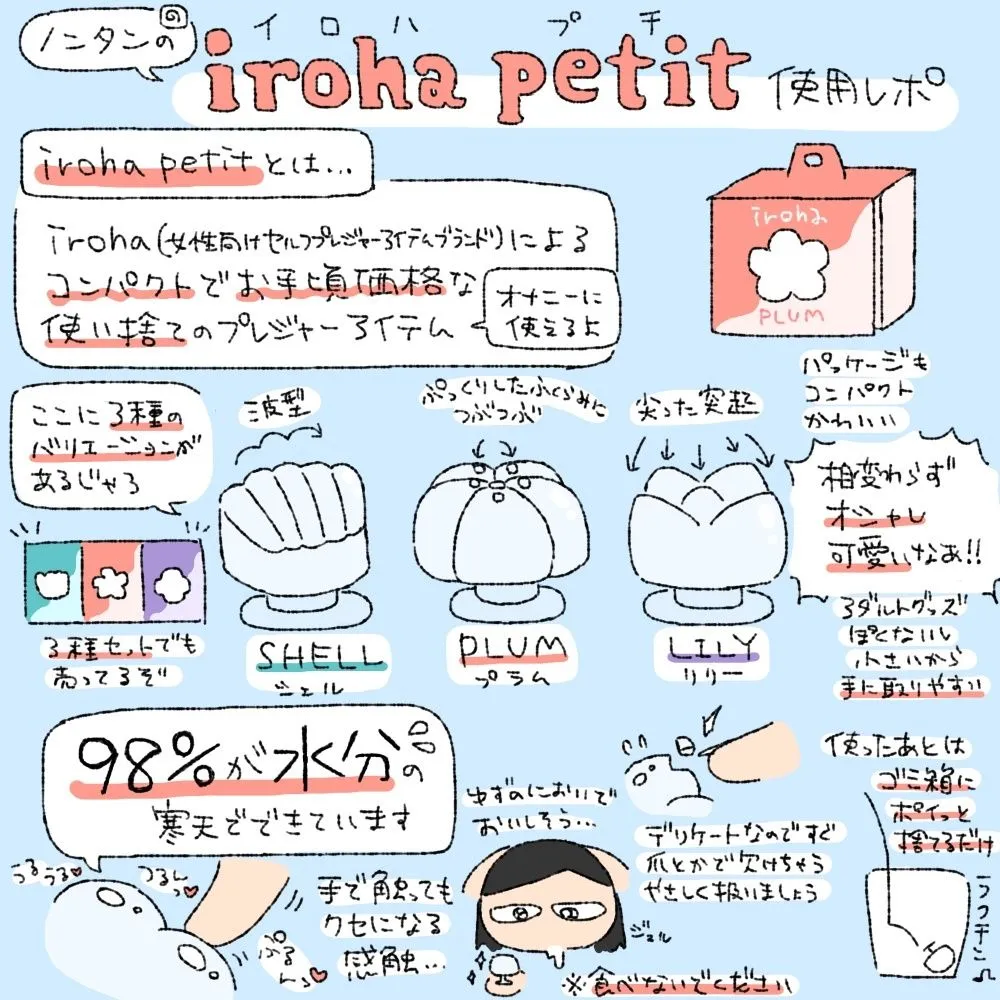 ノンタンの
イロハ プチ
iroha petit 使用レポ
iroha petitとは…
iroha(女性向けセルフプレジャーアイテムブランド)による
コンパクトでお手頃価格な
使い捨てのプレジャーアイテム
オナニーに
使えるよ
iroha
PLUM
パッケージも
コンパクト
かわいい
ここに3種の
バリエーションが
あるじゃろ
波型
ぷっくりしたふくらみに
つぶつぶ
尖った突起
相変わらず
オシャレ
可愛いなあ!!
3種セットでも
売ってるぞ
SHELL
シェル
PLUM
プラム
LILY
リリー
アダルトグッズ
ぽくないし
小さいから
手に取りやすい
98%が水分の
寒天でできています
ゆずのにおいで
おいしそう…
デリケートなのですぐ
爪とかで欠けちゃう
やさしく扱いましょう
使ったあとは
ゴミ箱に
ポイっと
捨てるだけ
つるうる♥
つるんっ♥
ぷるんっ♥
手で触っても
クセになる
感触…
ジュル
※食べないでください
ラクチン♫